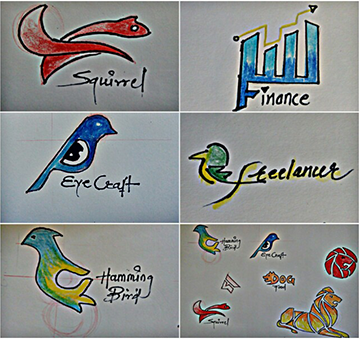 Squirrel
Finance
EyeCraft
freelancer
Hamming
Bird
Hamming
Bird
EyeCraft
DOG
Squirrel